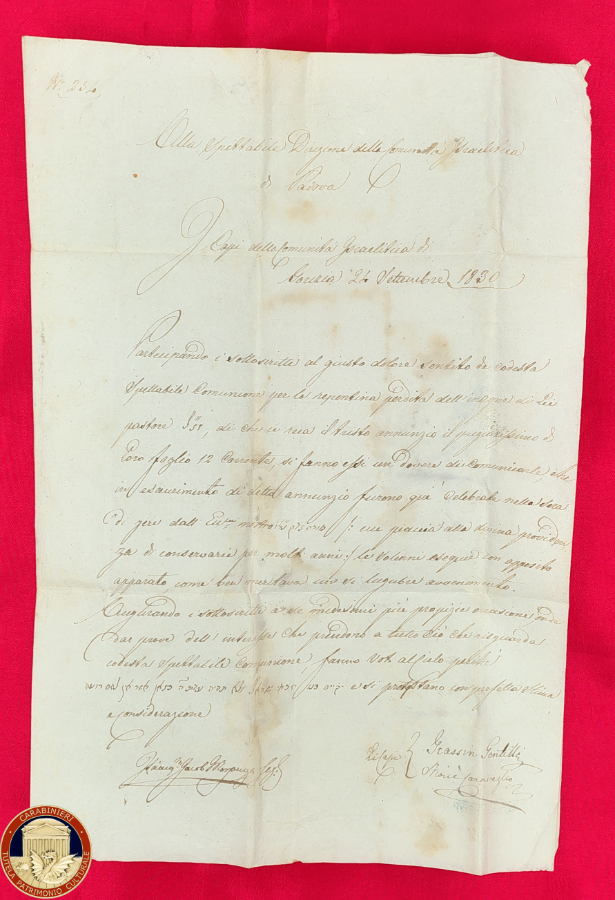 N.º 234
Alla Spettabile Direzione della Comunità Israelitica
di Padova
I Capi della Comunità Israelitica di
Gorizia 24 Settembre 1830
Partecipando i sottoscritti al giusto dolore sentito da codesta
Spettabile Comunione per la repentina perdita dell'insigne di Lei
pastore di che ci reca il tristo annunzio il pregiatissimo di
Loro foglio 12 Corrente, si fanno essi un dovere di Comunicarle, che
in esaurimento di detta annunzio furono qua celebrate nella
di jeri dall' nostro che piaccia alla divina provviden-
za di conservarci per molti anni le solenni esequie con apposito
apparato come ben meritava uno sì lugubre avvenimento.
Augurando i sottoscritti a se medesimi più propizie occasioni onde
dar prove dell' interesse che prendono a tutto ciò che risguarda
codesta Spettabile Comunione fanno voti al Cielo
e si protestano con perfetta stima
e considerazione
Jacob Morpurgo
Grassin Gentilli
CARABINIERI
TUTELA PATRIMONIO CULTURALE